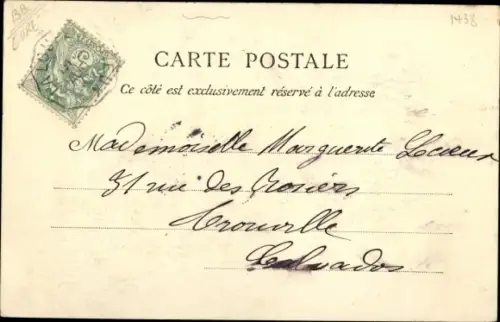 1438
CARTE POSTALE
Ce côté est exclusivement réservé à l'adresse
Mademoiselle Marguerite
31 rue des Rosiers
Trouville
Calvados